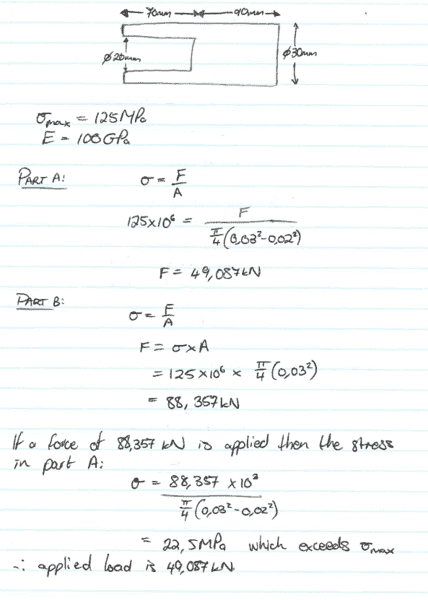 70mm 90mm
ø20mm ø30mm
σmax = 125MPa
E = 100GPa
PART A: σ = F/A
125x10⁶ = F / π/4 (0,03² - 0,02²)
F = 49,087kN
PART B:
σ = F/A
F = σxA
= 125x10⁶ x π/4 (0,03²)
= 88,357kN
If a force of 88,357 kN is applied then the stress
in part A:
σ = 88,357 x10³ / π/4 (0,03² - 0,02²)
= 22,5MPa which exceeds σmax
∴ applied load is 49,087kN